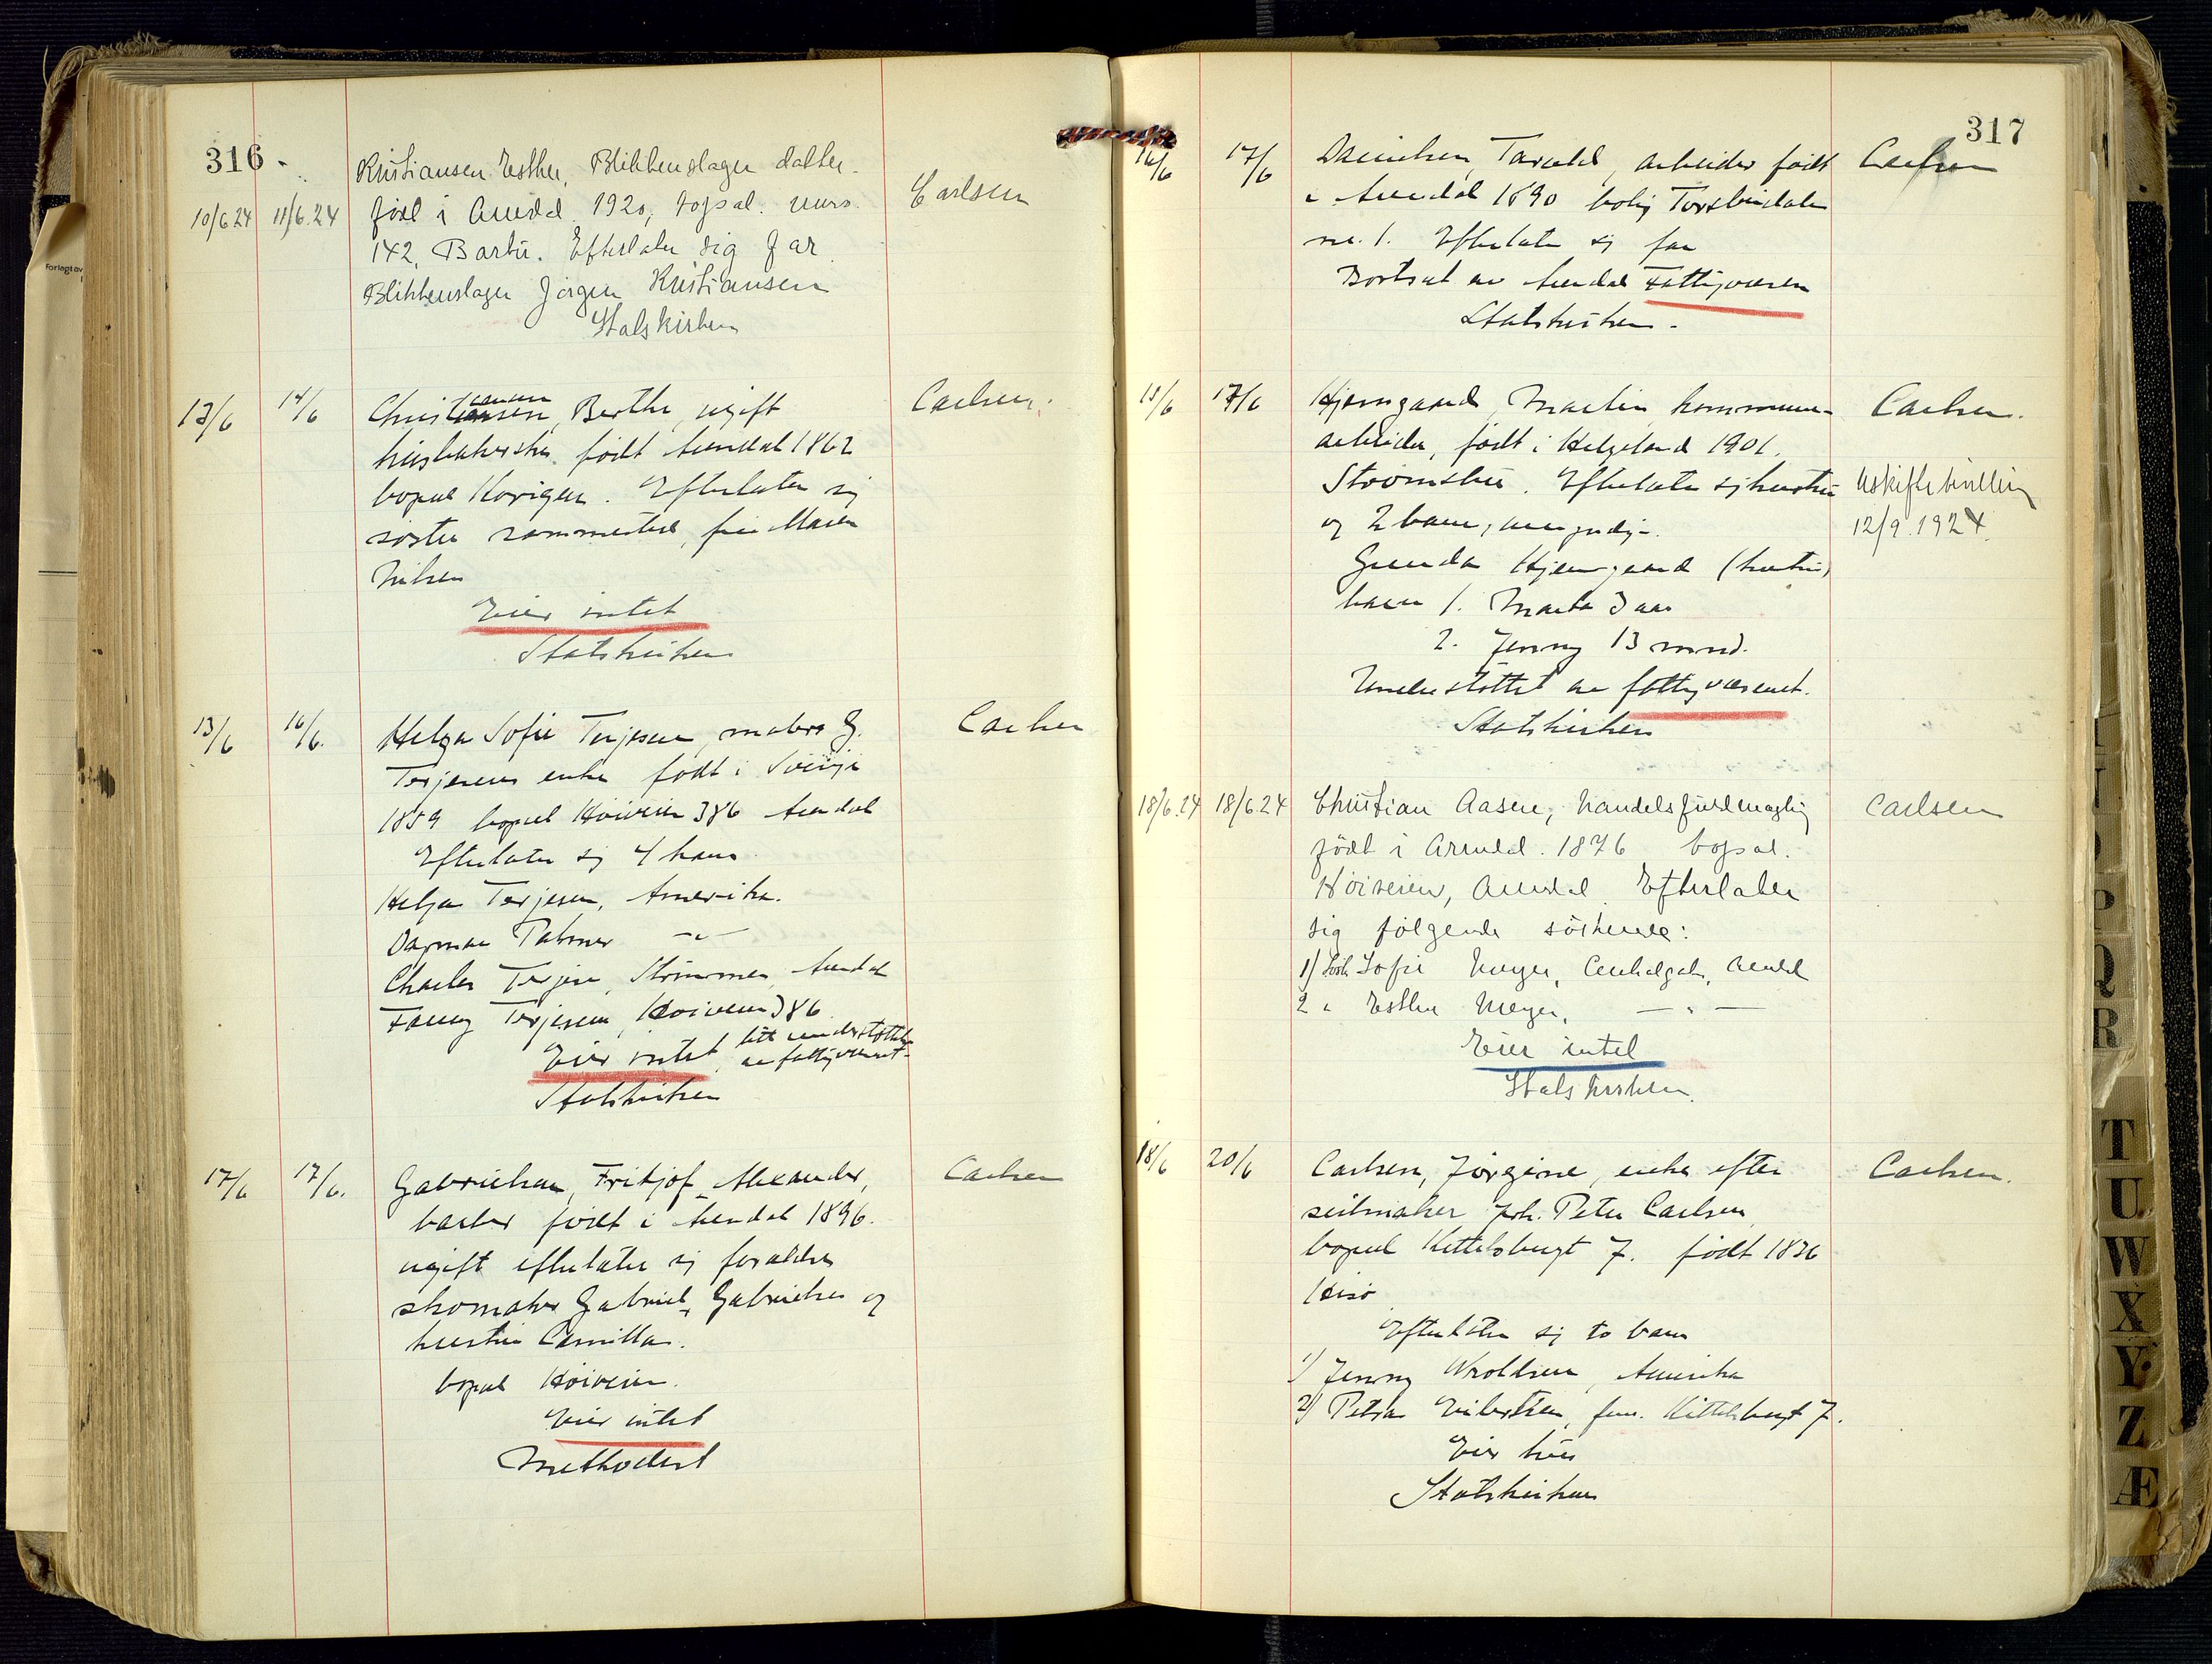 316
Kristiansen Esther, Blikkenslager datter.
10/6 24 11/6.24 född i Arendal 1920, bopæl. murs. Carlsen
142, Barbu. Efterlater sig Far
Blikkenslager Jörgen Kristiansen
Statskirken
13/6 14/6 Christiansen, Berthe, ugift Carlsen.
husholderske, födt Arendal 1862
bopæl Kovigen. Efterlater sig
söster sammesteds, fru Maren
Nilsen
Eier intet
Statskirken
13/6 16/6. Helga Sofie Terjesen, malers G. Carlsen
Terjesens enke födt i Sverige
1859 bopæl Höiveien 386 Arendal
Efterlater sig 4 barn
Helga Terjesen, Amerika.
Dagmar Palmer —"—
Charles Terjesen, Strömmen, Arendal
Fanny Terjesen, Höiveien 386
Eier intet, litt understöttet
av fattigvæsenet.
Statskirken
17/6 17/6. Gabrielsen, Fritjof Alexander, Carlsen
barber födt i Arendal 1896.
ugift efterlater sig forældre
skomaker Gabriel Gabrielsen og
hustru Camilla.
bopæl Höiveien.
Eier intet
Methodist
317
16/6 17/6 Danielsen, Tarald, arbeider födt Carlsen
i Arendal 1890 bolig Torsbudalen
nr. 1. Efterlater sig far
Bortsat av Arendal Fattigvæsen
Statskirken.
15/6 17/6 Hjemgaard, Martin kommune- Carlsen.
arbeider, födt i Helgeland 1901.
Strömsbu. Efterlater sig hustru Uskiftebevilling
og 2 barn, umyndige. 12/9.1924.
Gunda Hjemgaard (hustru)
barn 1. Marta 3 aar
2. Jenny 13 mnd.
Understöttet av fattigvæsenet.
Statskirken
18/6.24 18/6.24 Christian Aasen, handelsfuldmægtig Carlsen
födt i Arendal. 1876 bopæl.
Höiveien, Arendal. Efterlater
sig följgende söskende:
1) Sofie Meyer, Arendal
2 " Esther Meyer, —"—
Eier intet
Statskirken.
18/6 20/6 Carlsen, Jörgine, enke efter Carlsen.
seilmaker Joh. Peter Carlsen
bopæl Kittelsbugt 7. födt 1836
Hisö
Efterlater sig to barn
1) Jenny Wroldsen, Amerika
2) Petra Eilertsen, fru. Kittelsbugt 7.
Eier hus
Statskirken
T
U
W
X
Y
Z
Æ
P
Q
R